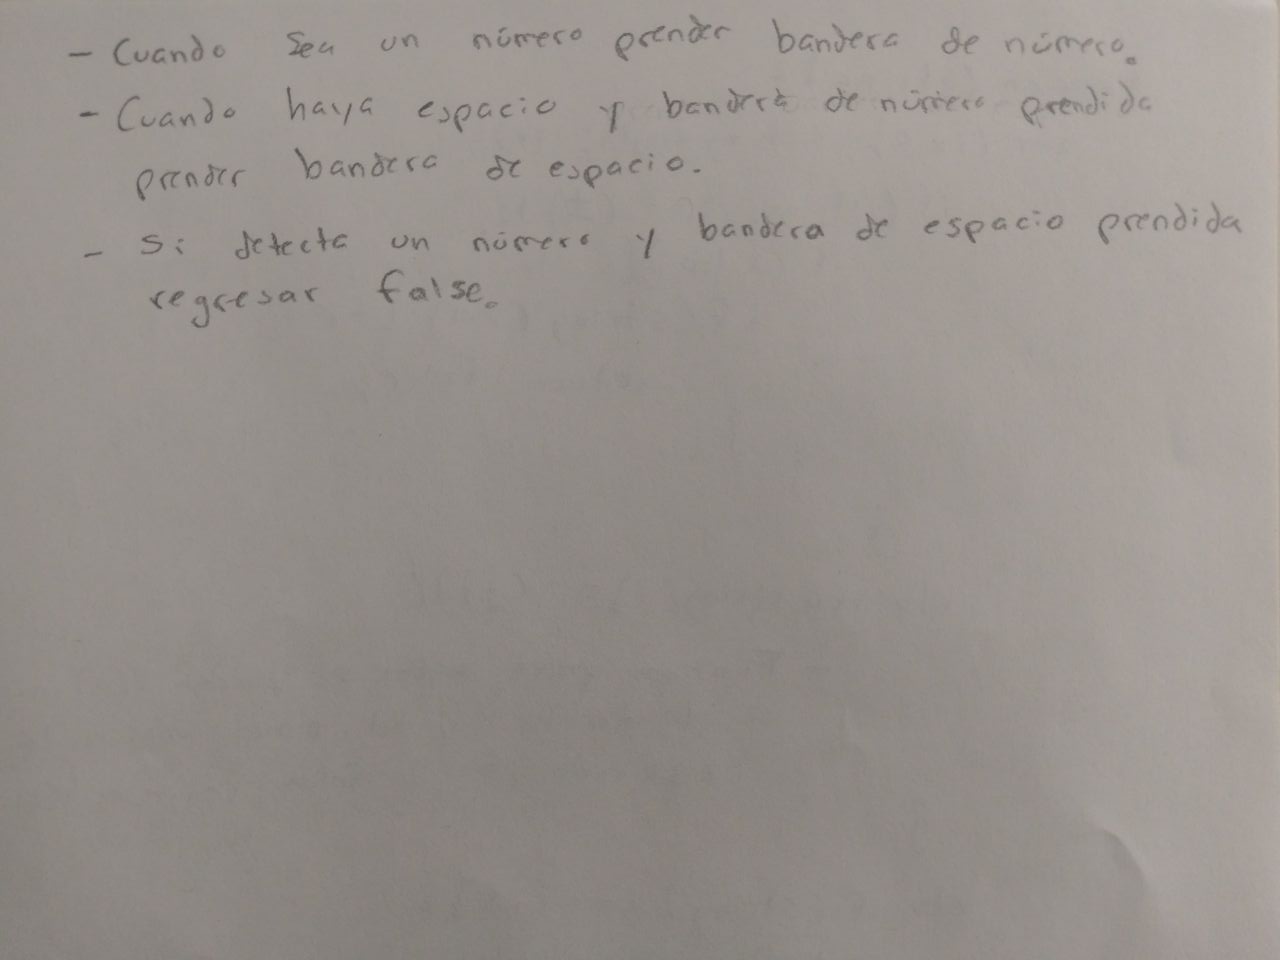 - Cuando sea un número prender bandera de número.
- Cuando haya espacio y bandera de número prendida
prender bandera de espacio.
- Si detecta un número y bandera de espacio prendida
regresar false.